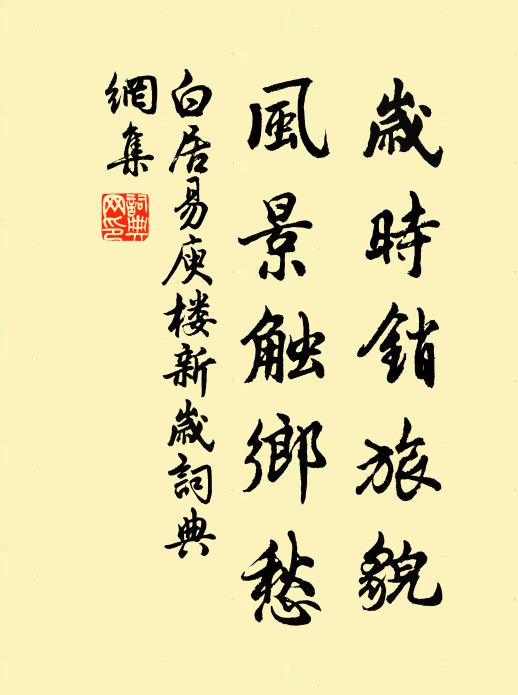 歲時銷旅貌
風景触鄉愁
白居易庾楼新歲詞典
網集
詞典网印